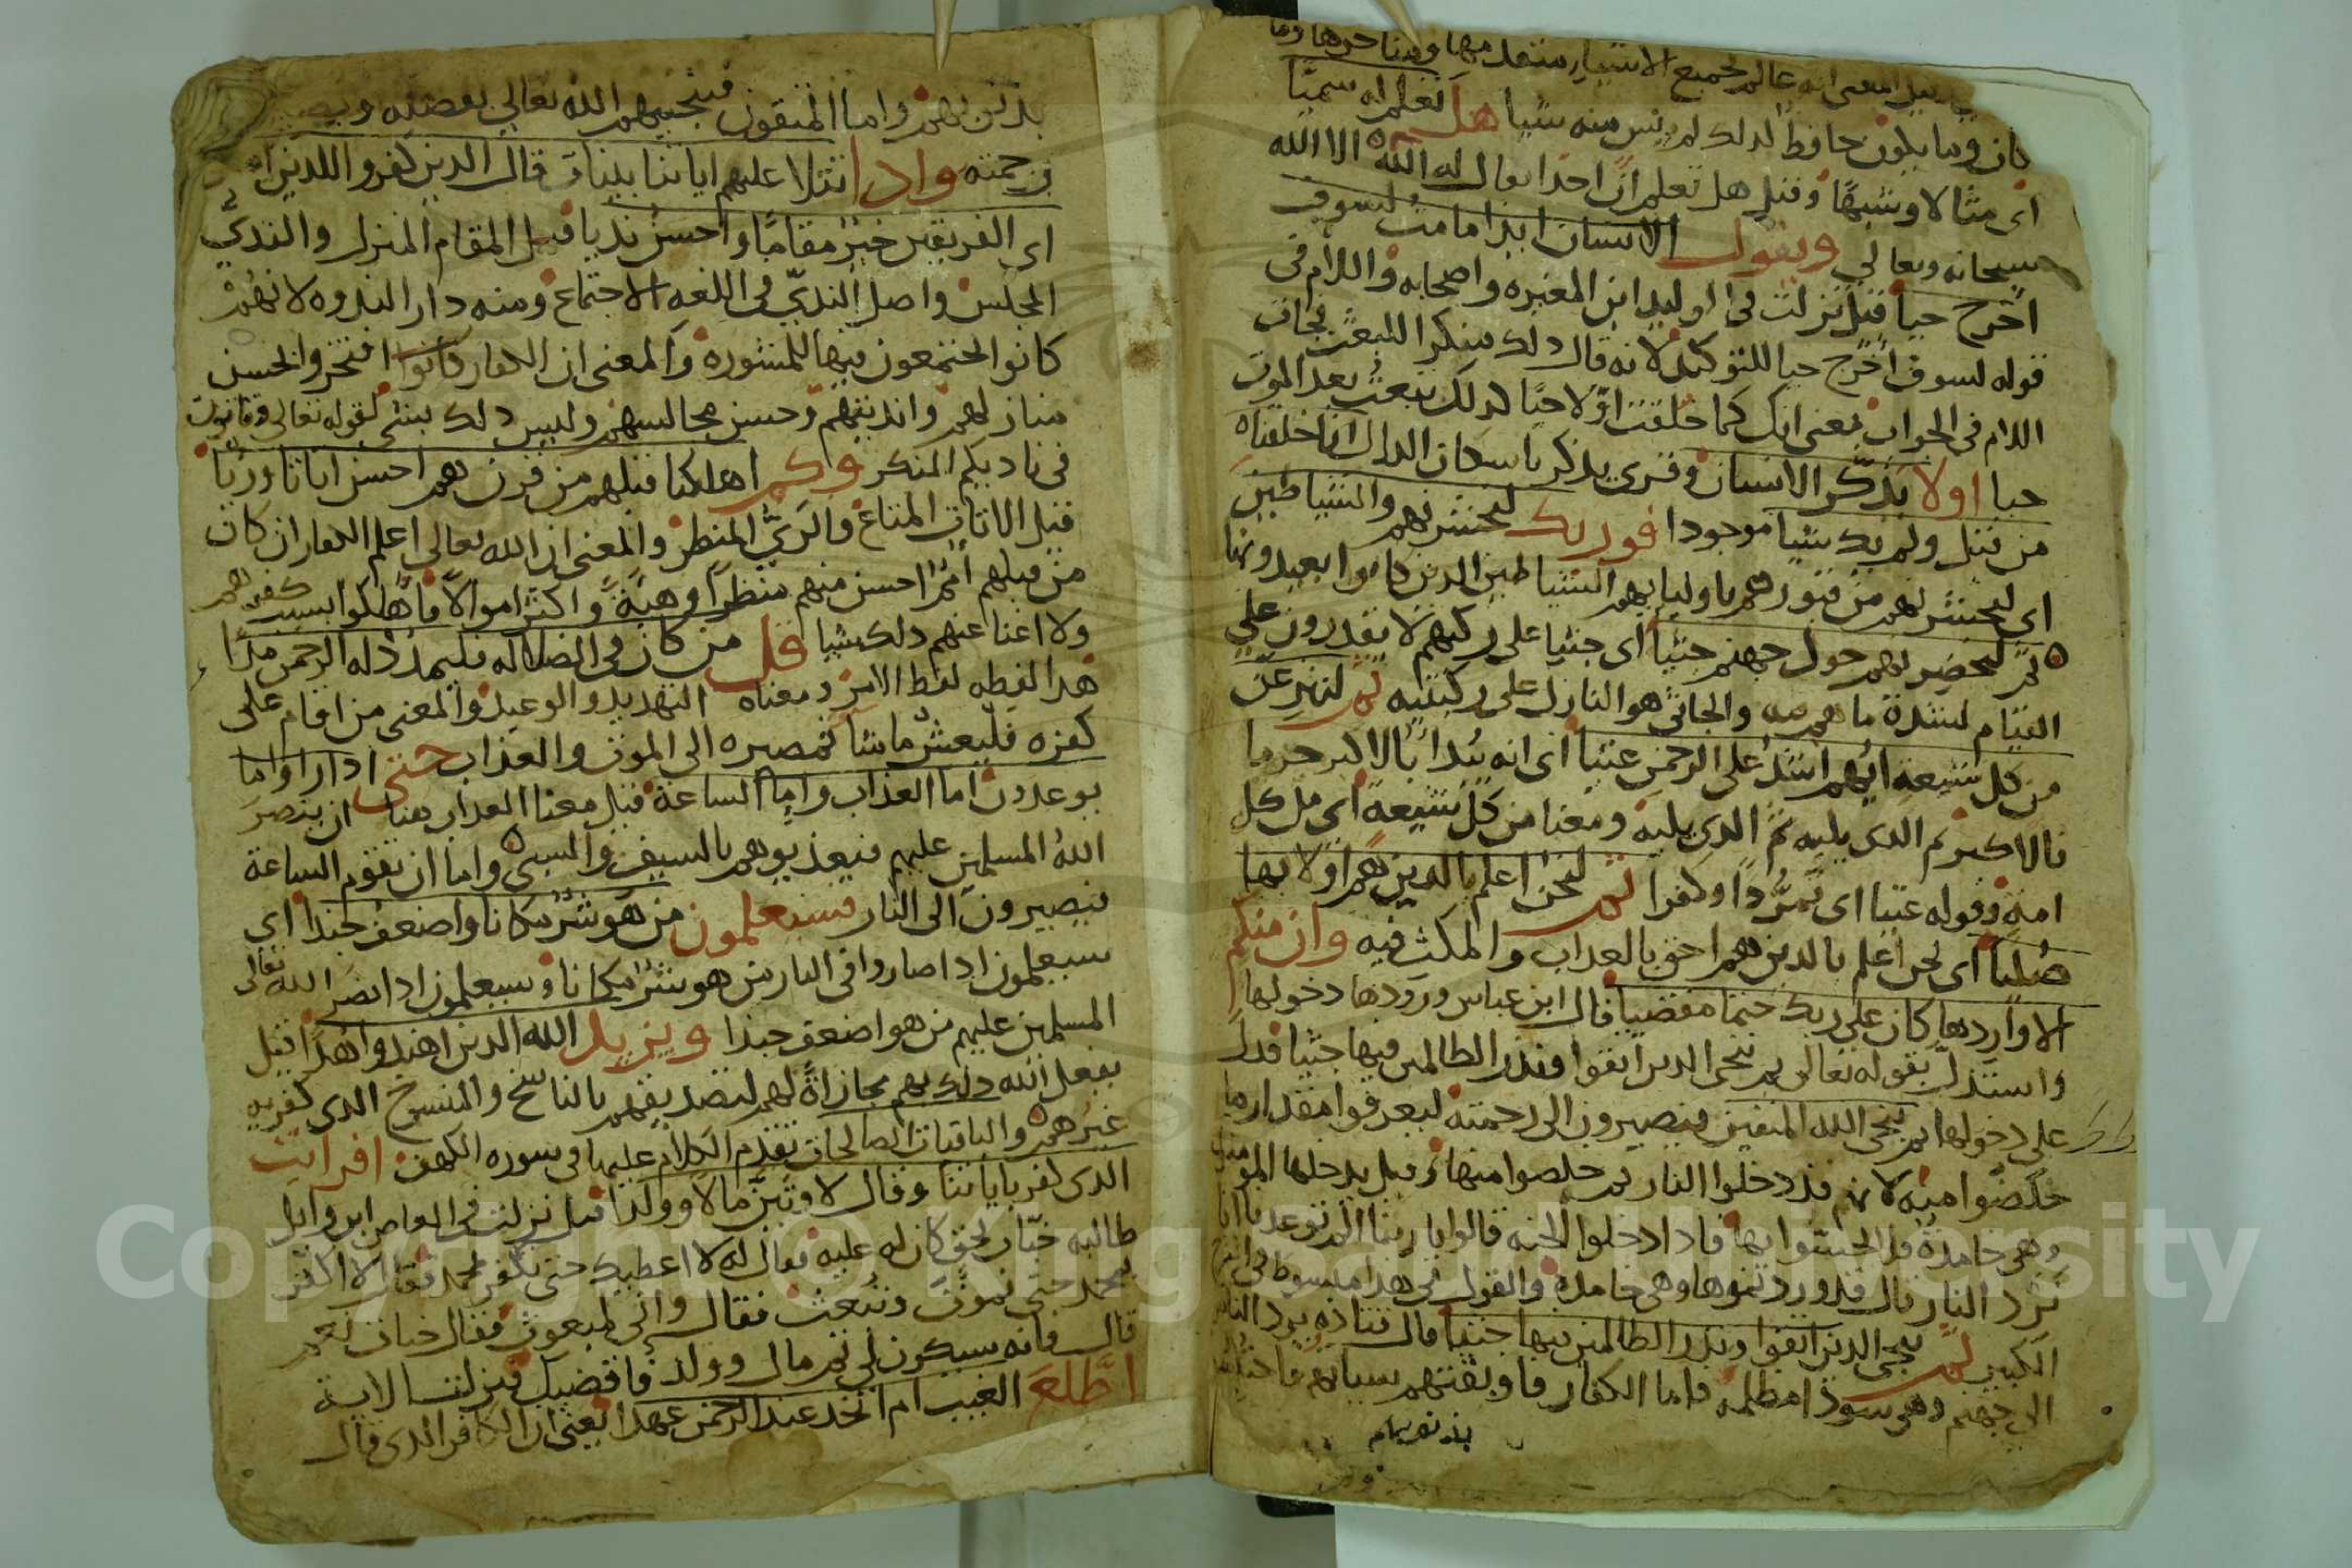 المعنى انه عالم لجميع الاشيا متقدمها ومتاخرها وما
كان وما يكون حافظ لذلك لم ينس منه شيا هل تعلم له سميّا
اى مثالا وشبهًا وقيل هل تعلم انّ احدًا يقال له الله الا الله
سبحانه وتعالي ويقول الانسان ايذا ما مت لسوف
اخرج حيا قيل نزلت فى الوليد ابن المغيره واصحابه واللام فى
قوله لسوف اُخرج حيا للتوكيد لانه قال ذلك منكرا للبعث فجات
اللام فى الجواب بمعنى انك كما خلقت اوّلا حيًا كذلك تبعث بعد الموت
حيا اولا يذّكر الانسان وقرى يذكر باسكان الدال انا خلقناه
من قبل ولم يك شيا موجودا فوربك لنحشرنهم والشياطين
اى لنحشرنهم من قبورهم باوليايهم الشياطين الدين كانوا يعبدونها
ثم لنحضرنهم حول جهنم جثيا اى جثيا على ركبهم لا يقدرون على
القيام لشدة ما هم فيه والجاثى هو النازل على ركبتيه ثم لننزعنّ
من كل شيعه ايهم اشد على الرحمن عتيا اى انه يُبدا بالاكبر جرما
فالاكبر ثم الدى يليه ثم الدى يليه ومعنا من كل شيعةٍ اى من كل
امة وقوله عتيا اى تمرُّدًا وكفرا ثم لنحن اعلم بالدين هم اولا بها
صُليا اى نحن اعلم بالدين هم احق بالعداب والمكث فيه وان منكم
الا واردها كان على ربك حتما مقضيا قال ابن عباس ورودها دخولها
واستدلّ بقوله تعالى ثم ننجى الدين اتقوا ونذر الظالمين فيها جثيا فدل
على دخولها ثم ينجى الله المتقين فيصيرون الى رحمته ليعرفوا مقدار ما
خلصوا منه لانهم قد دخلوا النار ثم خلصوا منها وقيل يدخلها المومنون
وهى خامدةٌ فلا يحسّوا بها فادا دخلوا الجنه قالوا يا ربنا الم توعدنا انا
نرد النار قال قد وردتموها وهى خامدة والقول فى هذا مبسوط فى
الكبير ثم ننجى الدين اتقوا ونذر الظالمين فيها جثيا قال قتاده يرد الناس
الى جهنم وهى سودا مظلمه فاما الكفار فاوبقتهم سياتهم فاحتبسوا
بذنوبهم
بذنوبهم واما المتقون فينجيهم الله تعالي بفضله
ورحمته واذا تتلا عليهم اياتنا بينات قال الدين كفروا للدين امنوا
اى الفريقين خيرٌ مقامًا واحسن نديا قيل المقام المنزل والنديّ
المجلس واصل النديّ فى اللغه الاجتماع ومنه دار الندوه لانهم
كانوا يجتمعون فيها للمشوره والمعنى ان الكفار كانوا افتخروا بحسن
منازلهم وانديتهم وحسن مجالسهم وليس ذلك بشى كقوله تعالى وتاتون
فى ناديكم المنكر وكم اهلكنا قبلهم من قرن هم احسن اثاثا وريًا
قيل الاثاث المتاع والرىّ المنظر والمعنى ان الله تعالى اعلم الكفار ان كان
من قبلهم اممٌ احسن منهم منظرًا وهيةً واكثر اموالًا فاهلكوا بسبب كفرهم
ولا اغنا عنهم ذلك شيا قل من كان فى الضلاله فليمدد له الرحمن مدا
هذا لفظه لفظ الامر ومعناه التهديد والوعيد والمعنى من اقام على
كفره فليعش ما شا ثم مصيره الى الموت والعذاب حتى اذا راوا ما
يوعدون اما العذاب واما الساعة قيل معنا العداب هنا ان ينصر
اللهُ المسلمين عليهم فيعذبوهم بالسيف والسبى واما ان تقوم الساعة
فيصيرون الى النار فسيعلمون من هو شرٌ مكانا واضعف جندا اى
سيعلمون ادا صاروا فى النار من هو شرٌ مكانا وسيعلمون ادا نصر الله تعالى
المسلمين عليهم من هو اضعف جندا ويزيد الله الدين اهتدوا هدًا قيل
يفعل الله ذلك بهم مجازاةً لهم لتصديقهم بالناسخ والمنسوخ الدى كفر به
غيرهم والباقيات الصالحات تقدم الكلام عليها فى سوره الكهف افرايت
الدى كفر باياتنا وقال لاوتينّ مالا وولدا قيل نزلت فى العاص ابن وايل
طالبه خبّاب بحق كان له عليه فقال له لا اعطيك حتى تكفر بمحمد فقال لا اكفر
بمحمد حتى تموت وتبعث فقال وانى لمبعوث فقال خباب نعم
قال فانه سيكون لى ثم مال وولد فاقضيك فنزلت الاية
اطّلع الغيب ام اتخذ عند الرحمن عهدا يعنى ان الكافر الدى قال
Copyright © King Saud University